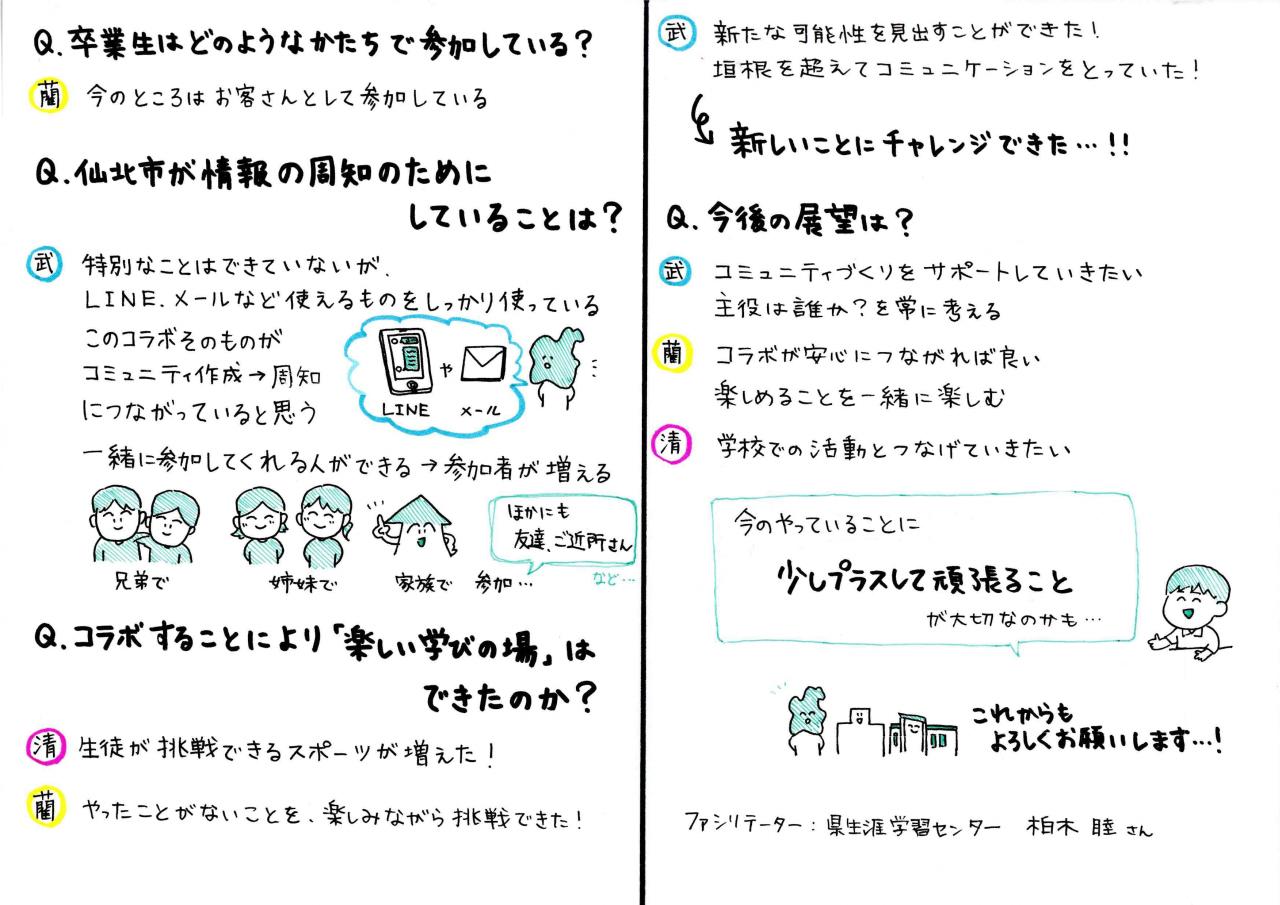 Q.卒業生はどのようなかたちで参加している?
蘭 今のところはお客さんとして参加している
Q.仙北市が情報の周知のために
していることは?
武 特別なことはできていないが、
LINE、メールなど使えるものをしっかり使っている
このコラボそのものが
コミュニティ作成→周知
につながっていると思う
LINE や メール
一緒に参加してくれる人ができる→参加者が増える
兄弟で 姉妹で 家族で 参加…
ほかにも
友達、ご近所さん
など…
Q.コラボすることにより「楽しい学びの場」は
できたのか?
清 生徒が挑戦できるスポーツが増えた!
蘭 やったことがないことを、楽しみながら挑戦できた!
武 新たな可能性を見出すことができた!
垣根を超えてコミュニケーションをとっていた!
新しいことにチャレンジできた…!!
Q.今後の展望は?
武 コミュニティづくりをサポートしていきたい
主役は誰か?を常に考える
蘭 コラボが安心につながれば良い
楽しめることを一緒に楽しむ
清 学校での活動とつなげていきたい
今のやっていることに
少しプラスして頑張ること
が大切なのかも…
これからも
よろしくお願いします…!
ファシリテーター:県生涯学習センター 柏木 睦さん